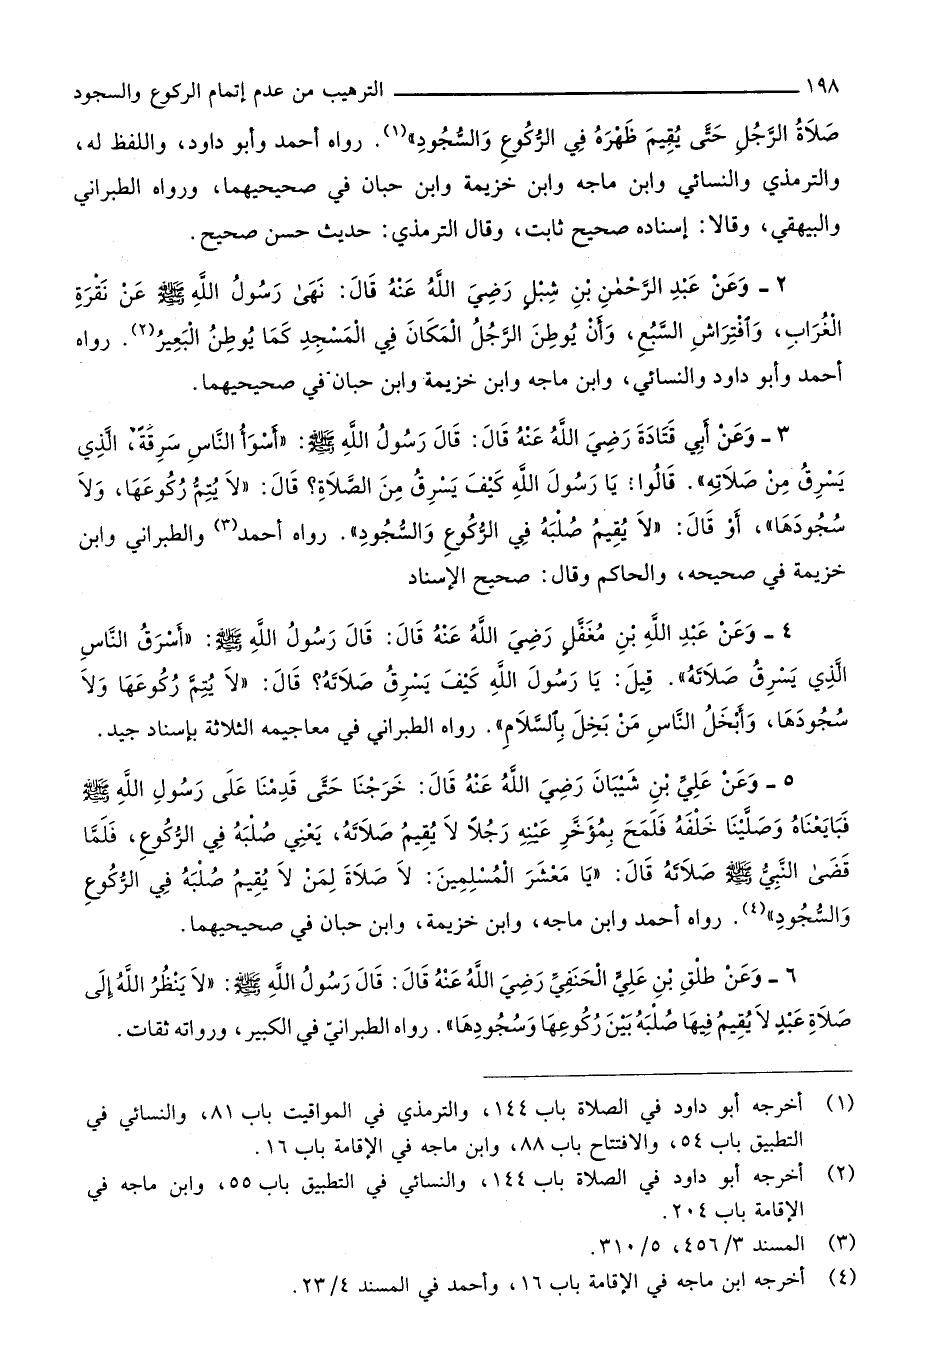 ١٩٨ الترهيب من عدم إتمام الركوع والسجود
صَلَاةُ الرَّجُلِ حَتَّى يُقِيمَ ظَهْرَهُ فِي الرُّكُوعِ وَالسُّجُودِ»(١). رواه أحمد وأبو داود، واللفظ له،
والترمذي والنسائي وابن ماجه وابن خزيمة وابن حبان في صحيحيهما، ورواه الطبراني
والبيهقي، وقالا: إسناده صحيح ثابت، وقال الترمذي: حديث حسن صحيح.
٢ ـ وَعَنْ عَبْدِ الرَّحْمٰنِ بْنِ شِبْلٍ رَضِيَ اللَّهُ عَنْهُ قَالَ: نَهَىٰ رَسُولُ اللَّهِ ﷺ عَنْ نَقْرَةِ
الْغُرَابِ، وَٱفْتِرَاشِ السَّبُعِ، وَأَنْ يُوطِنَ الرَّجُلُ الْمَكَانَ فِي الْمَسْجِدِ كَمَا يُوطِنُ الْبَعِيرُ(٢). رواه
أحمد وأبو داود والنسائي، وابن ماجه وابن خزيمة وابن حبان في صحيحيهما.
٣ ـ وَعَنْ أَبِي قَتَادَةَ رَضِيَ اللَّهُ عَنْهُ قَالَ: قَالَ رَسُولُ اللَّهِ ﷺ: «أَسْوَأُ النَّاسِ سَرِقَةً، الَّذِي
يَسْرِقُ مِنْ صَلَاتِهِ». قَالُوا: يَا رَسُولَ اللَّهِ كَيْفَ يَسْرِقُ مِنَ الصَّلَاةِ؟ قَالَ: «لَا يُتِمُّ رُكُوعَهَا، وَلَا
سُجُودَهَا»، أَوْ قَالَ: «لَا يُقِيمُ صُلْبَهُ فِي الرُّكُوعِ وَالسُّجُودِ». رواه أحمد(٣) والطبراني وابن
خزيمة في صحيحه، والحاكم وقال: صحيح الإسناد
٤ ـ وَعَنْ عَبْدِ اللَّهِ بْنِ مُغَفَّلٍ رَضِيَ اللَّهُ عَنْهُ قَالَ: قَالَ رَسُولُ اللَّهِ ﷺ: «أَسْرَقُ النَّاسِ
الَّذِي يَسْرِقُ صَلَاتَهُ». قِيلَ: يَا رَسُولَ اللَّهِ كَيْفَ يَسْرِقُ صَلَاتَهُ؟ قَالَ: «لَا يُتِمُّ رُكُوعَهَا وَلَا
سُجُودَهَا، وَأَبْخَلُ النَّاسِ مَنْ بَخِلَ بِٱلسَّلَامِ». رواه الطبراني في معاجيمه الثلاثة بإسناد جيد.
٥ ـ وَعَنْ عَلِيِّ بْنِ شَيْبَانَ رَضِيَ اللَّهُ عَنْهُ قَالَ: خَرَجْنَا حَتَّى قَدِمْنَا عَلَى رَسُولِ اللَّهِ ﷺ
فَبَايَعْنَاهُ وَصَلَّيْنَا خَلْفَهُ فَلَمَحَ بِمُؤَخَّرِ عَيْنِهِ رَجُلًا لَا يُقِيمُ صَلَاتَهُ، يَعْنِي صُلْبَهُ فِي الرُّكُوعِ، فَلَمَّا
قَضَىٰ النَّبِيُّ ﷺ صَلَاتَهُ قَالَ: «يَا مَعْشَرَ الْمُسْلِمِينَ: لَا صَلَاةَ لِمَنْ لَا يُقِيمُ صُلْبَهُ فِي الرُّكُوعِ
وَالسُّجُودِ»(٤). رواه أحمد وابن ماجه، وابن خزيمة، وابن حبان في صحيحيهما.
٦ ـ وَعَنْ طَلْقِ بْنِ عَلِيٍّ الْحَنَفِيِّ رَضِيَ اللَّهُ عَنْهُ قَالَ: قَالَ رَسُولُ اللَّهِ ﷺ: «لَا يَنْظُرُ اللَّهُ إِلَى
صَلَاةِ عَبْدٍ لَا يُقِيمُ فِيهَا صُلْبَهُ بَيْنَ رُكُوعِهَا وَسُجُودِهَا». رواه الطبرانيّ في الكبير، ورواته ثقات.
(١) أخرجه أبو داود في الصلاة باب ١٤٤، والترمذي في المواقيت باب ٨١، والنسائي في
التطبيق باب ٥٤، والافتتاح باب ٨٨، وابن ماجه في الإقامة باب ١٦.
(٢) أخرجه أبو داود في الصلاة باب ١٤٤، والنسائي في التطبيق باب ٥٥، وابن ماجه في
الإقامة باب ٢٠٤.
(٣) المسند ٣/ ٤٥٦، ٥/ ٣١٠.
(٤) أخرجه ابن ماجه في الإقامة باب ١٦، وأحمد في المسند ٤/ ٢٣.